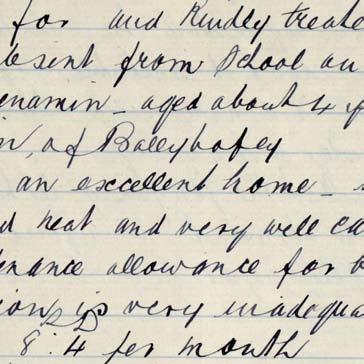 for and kindly treate
bsent from School an
enamin - aged about 4 y
n, of Ballybofey
an excellent home -
d neat and very well ca
enance allowance for
ion is very inadequa
8.4 per month